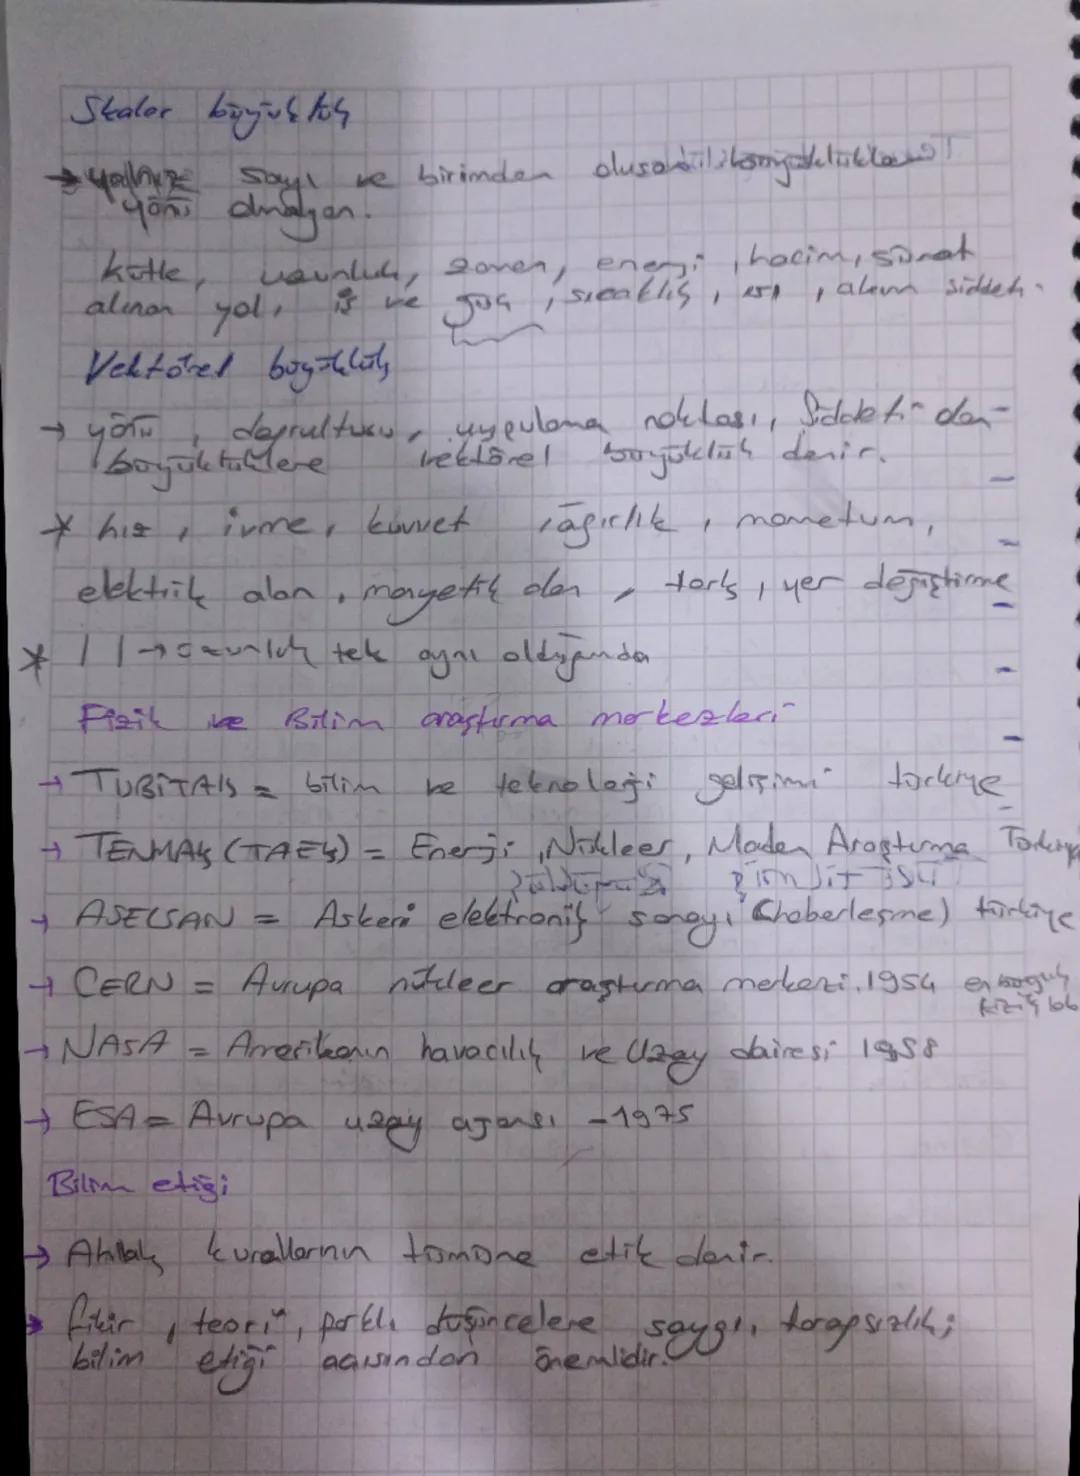 Skaler büyüklük
→ yalnız sayı ve birimden
yönü olmayan.
kütle, uzunluk, zaman, enerji, hacim, sürat
alınan yol, iş ve güç, sıcaklık, ısı, akım şiddeti
Vektörel büyüklük
→ yönü, doğrultusu, uygulama noktası, şiddeti olan
büyüklüklere vektörel büyüklük denir.
* hız, ivme, kuvvet, ağırlık, mometum,
elektrik alan, manyetik alan, tork, yer değiştirme
* | | → uzunluk tek aynı olduğunda
Fizik ve Bilim araştırma merkezleri
→ TUBİTAK = bilim ve teknoloji gelişimi türkiye
→ TENMAK (TAEK) = Enerji, Nükleer, Maden Araştırma Türkiye
→ ASELSAN = Askeri elektronik sanayi (haberleşme) türkiye
→ CERN = Avrupa nükleer araştırma merkezi. 1954 en büyük
fizik lab
→ NASA = Amerikanın havacılık ve Uzay dairesi 1958
→ ESA = Avrupa uzay ajansı - 1975
Bilim etiği
→ Ahlak kurallarının tümüne etik denir.
→ fikir, teori, farklı düşüncelere saygı, tarafsızlık;
bilim etiği açısından önemlidir.